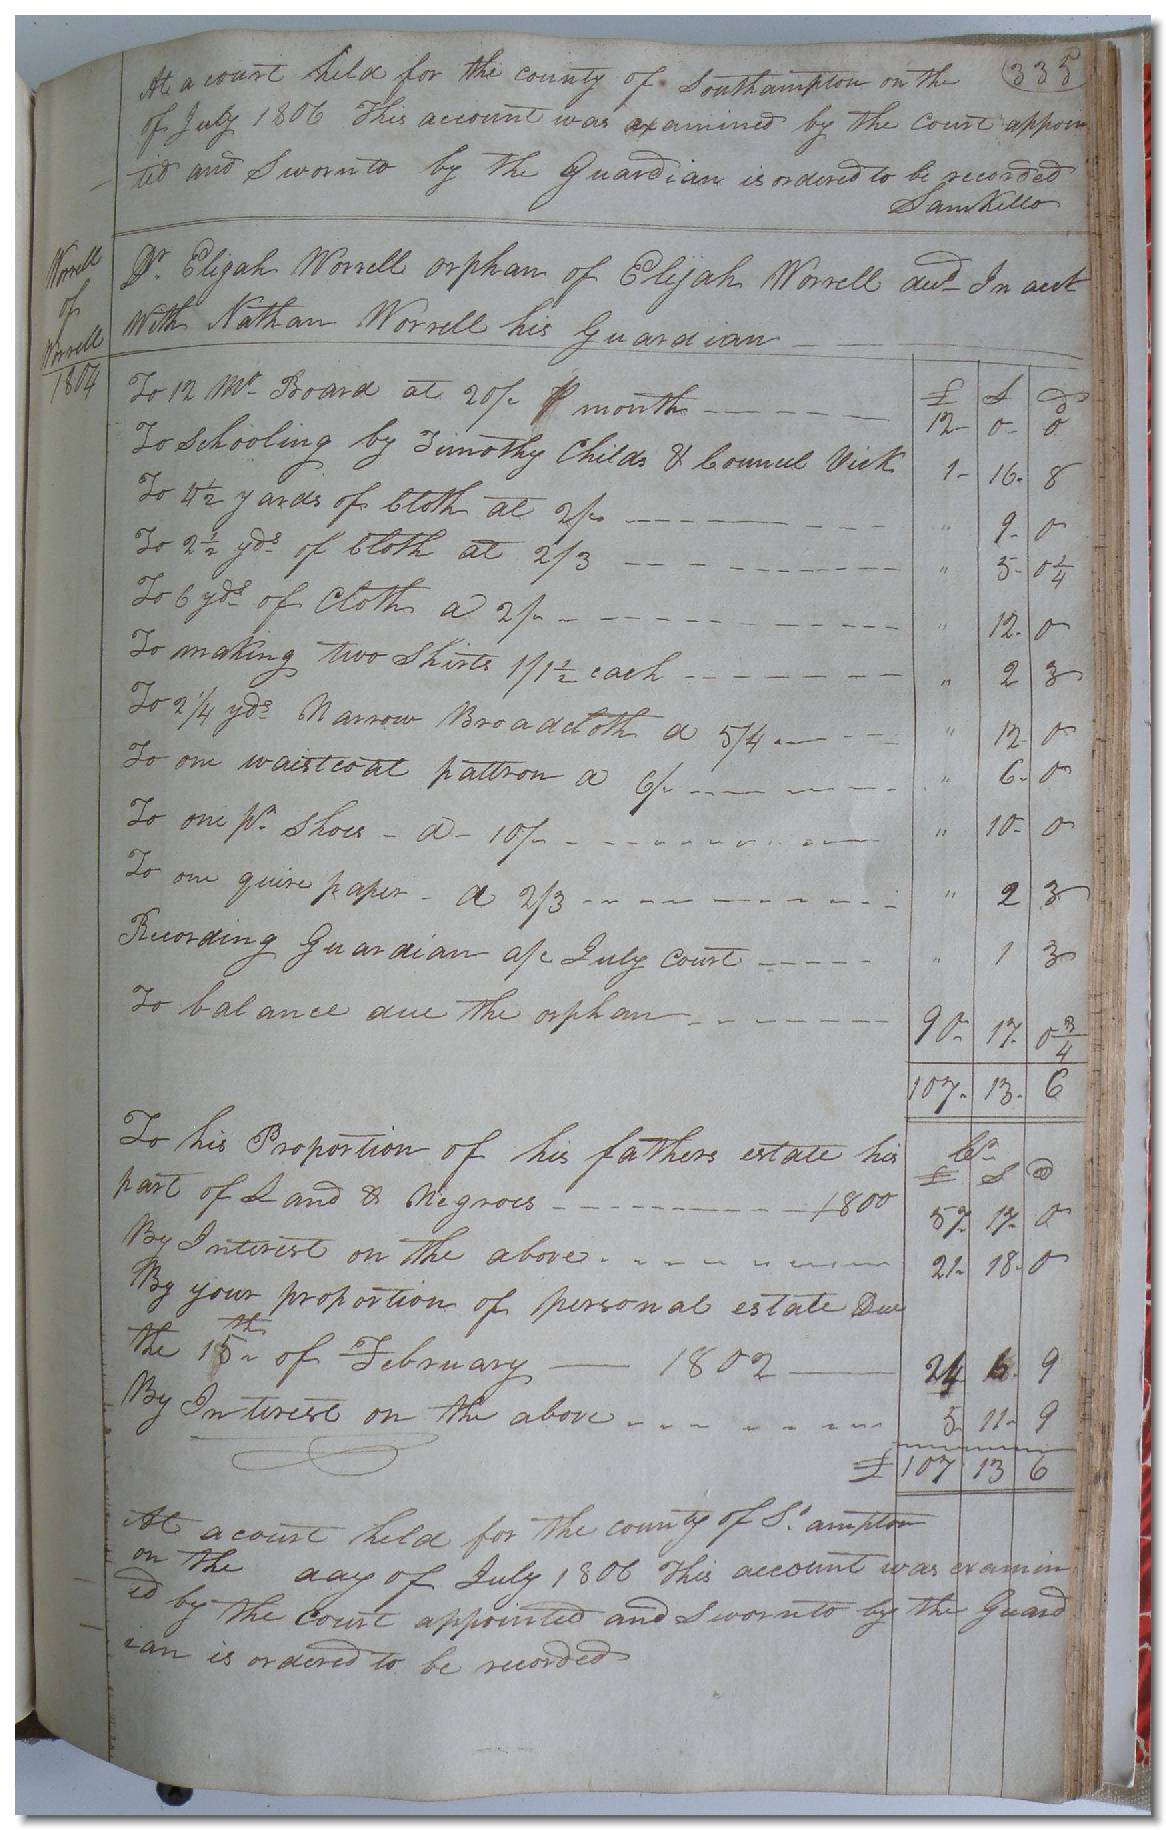 335
At a court held for the county of Southampton on the
of July 1806 This account was examined by the court appoin
ted and Sworn to by the Guardian is ordered to be recorded
Sam Kello
Worrell
of
Worrell
1804
Dr. Elijah Worrell orphan of Elijah Worrell decd In acct
With Nathan Worrell his Guardian
£ S d
To 12 Mo. Board at 20/- P month 12 - 0 - 0
To Schooling by Timothy Childs & Council Vick 1 - 16 - 8
To 4½ yards of Cloth at 2/- " 9 - 0
To 2½ yds of Cloth at 2/3 " 5 - 0¼
To 6 yds of Cloth a 2/- " 12 - 0
To making two Shirts 1/1½ each " 2 3
To 2¼ yds Narrow Broadcloth a 5/4 " 12 0
To one waistcoat pattron a 6/- " 6 - 0
To one pr. Shoes - a - 10/- " 10 - 0
To one quire paper - a 2/3 " 2 3
Recording Guardian a/c July court " 1 3
To balance due the orphan 90 - 17 - 0¾
107 - 13 - 6
Cr
£ S D
To his Proportion of his fathers estate his
part of Land & Negroes 1800 57 - 17 - 0
By Interest on the above 21 - 18 - 0
By your proportion of personal estate Due
the 15th of February 1802 24 6 9
By Interest on the above 5 11 - 9
£ 107 13 6
At a court held for the county of S.ampton
on the day of July 1806 This account was examin
ed by the Court appointed and Sworn to by the Guard
ian is ordered to be recorded